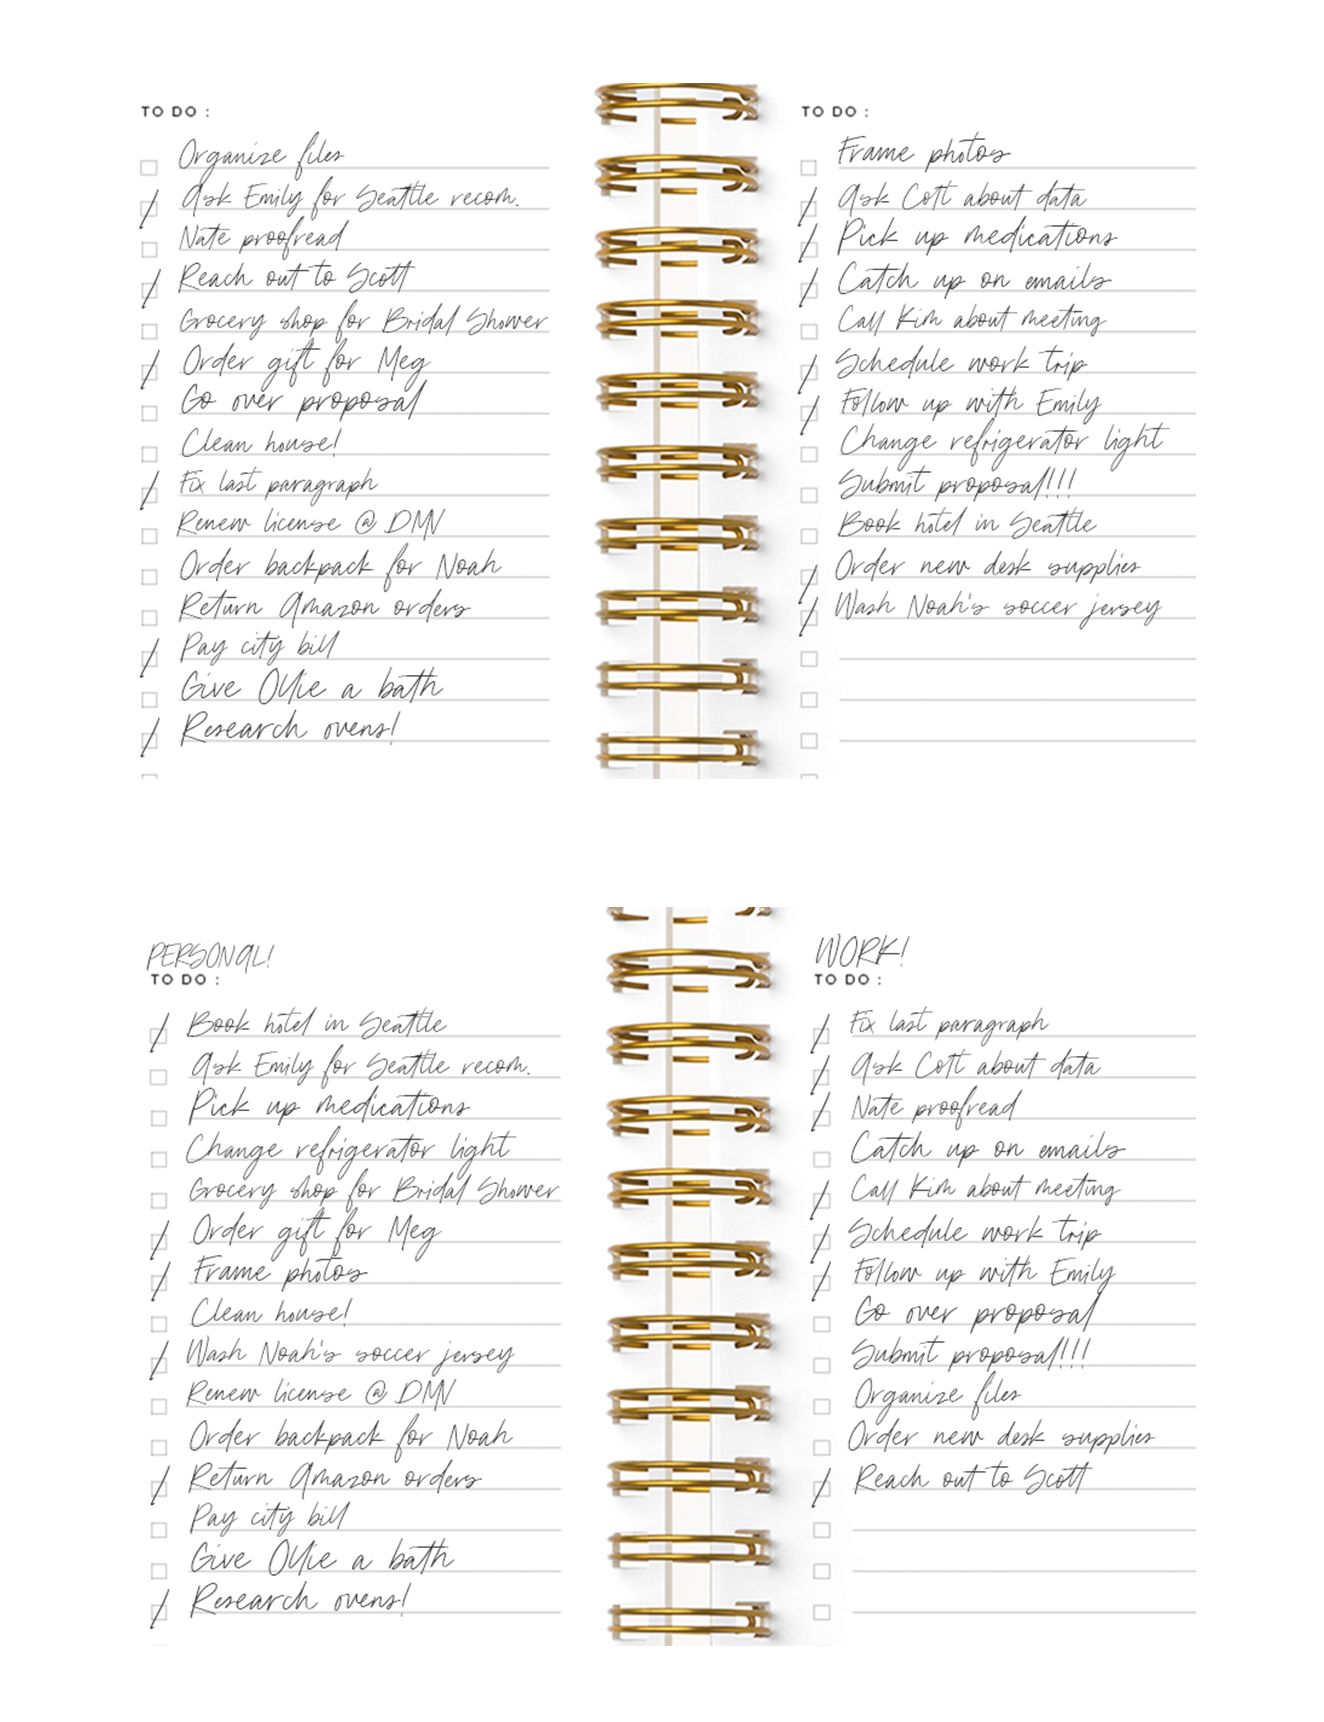 TO DO :
Organize files
Ask Emily for Seattle recom.
Nate proofread
Reach out to Scott
Grocery shop for Bridal Shower
Order gift for Meg
Go over proposal
Clean house!
Fix last paragraph
Renew license @ DMV
Order backpack for Noah
Return Amazon orders
Pay city bill
Give Ollie a bath
Research ovens!
TO DO :
Frame photos
Ask Colt about data
Pick up medications
Catch up on emails
Call Kim about meeting
Schedule work trip
Follow up with Emily
Change refrigerator light
Submit proposal!!!
Book hotel in Seattle
Order new desk supplies
Wash Noah's soccer jersey
PERSONAL!
TO DO :
Book hotel in Seattle
Ask Emily for Seattle recom.
Pick up medications
Change refrigerator light
Grocery shop for Bridal Shower
Order gift for Meg
Frame photos
Clean house!
Wash Noah's soccer jersey
Renew license @ DMV
Order backpack for Noah
Return Amazon orders
Pay city bill
Give Ollie a bath
Research ovens!
WORK!
TO DO :
Fix last paragraph
Ask Colt about data
Nate proofread
Catch up on emails
Call Kim about meeting
Schedule work trip
Follow up with Emily
Go over proposal
Submit proposal!!!
Organize files
Order new desk supplies
Reach out to Scott